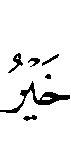 خَيْرٌ